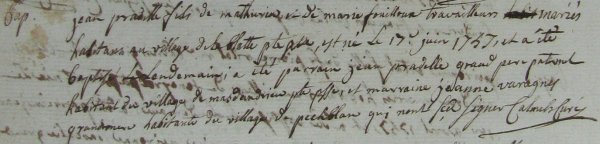 bap. jean pradelle fils de mathurin et de marie fouilloux travailleurs mariés
habitans au village de la blatte pte pste, est né le 17e juin 1757, et a été
baptisé le lendemain, a été parrain jean pradelle grand pere paternel
habitant du village de pte psse, et marraine jeanne varagnes
grandmere habitante du village de pechblanc qui nont sçu signer Calmels Curé